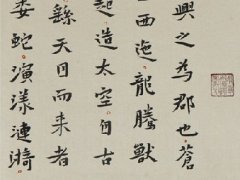 興之為郡也蒼
西迤龍騰獸
起造太空自古
繇天目而來者
委蛇演漾漣漪